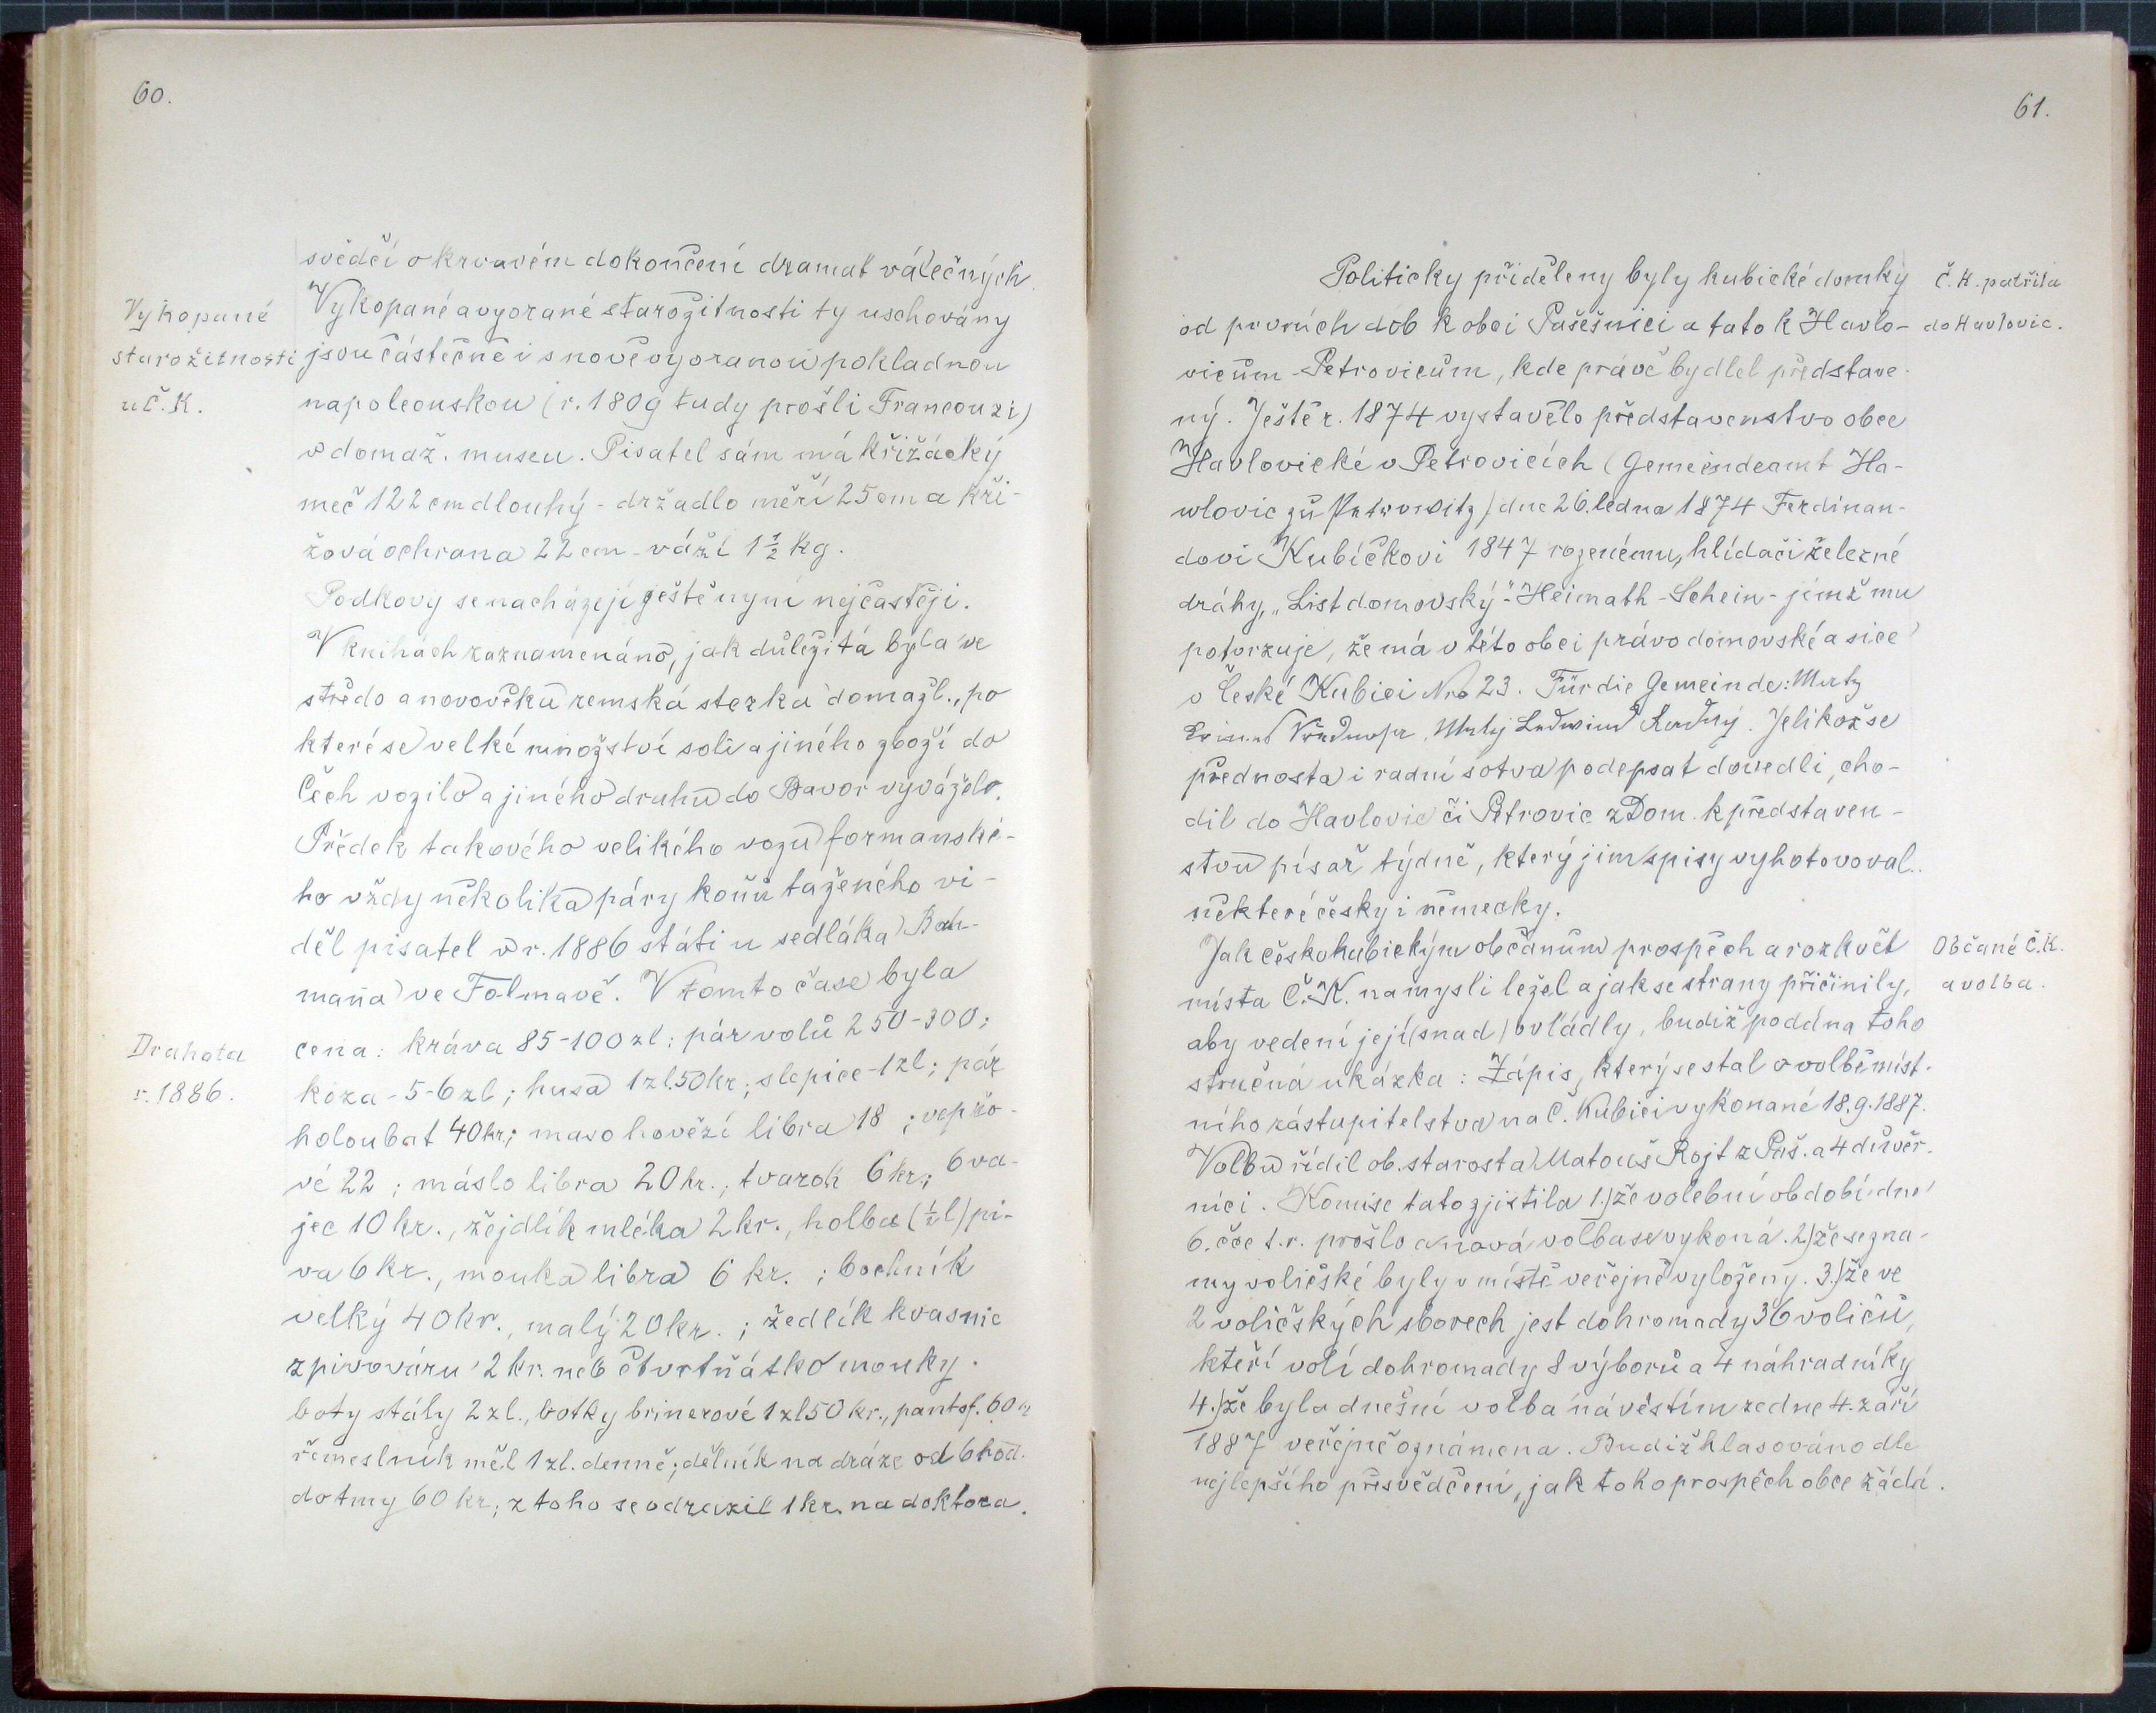 60.
svědčí o krvavém dokončení dramat válečných.
Vykopané
starožitnosti
u Č. K.
Vykopané a vyorané starožitnosti ty uschovány
jsou částečně i s nově vyoranou pokladnou
napoleonskou (r. 1809 tudy prošli Francouzi)
v domaž. museu. Pisatel sám má křižácký
meč 122 cm dlouhý - držadlo měří 25 cm a kři-
žová ochrana 22 cm - váží 1 1/2 kg.
Podkovy se nacházejí ještě nyní nejčastěji.
V knihách zaznamenáno, jak důležitá byla ve
středo a novověku zemská stezka domažl., po
které se velké množství soli a jiného zboží do
Čech vozilo a jiného druhu do Bavor vyváželo.
Předek takového velikého vozu formanské-
ho vždy několika páry koňů taženého vi-
děl pisatel v r. 1886 státi u sedláka Bah-
maňa ve Folmavě. V tomto čase byla
Drahota
r. 1886.
cena: kráva 85-100 zl; pár volů 250-300;
koza - 5-6 zl; husa 1 zl. 50 kr; slepice - 1 zl; pár
holoubat 40 kr; maso hovězí libra 18; vepřo-
vé 22; máslo libra 20 kr.; tvaroh 6 kr; 6 va-
jec 10 kr., žejdlík mléka 2 kr., holba (1/2 l) pi-
va 6 kr., mouka libra 6 kr.; bochník
velký 40 kr., malý 20 kr.; žedlík kvasnic
z pivováru 2 kr. neb čtvrtňátko mouky.
boty stály 2 zl., botky brinerové 1 zl 50 kr., pantof. 60 k
řemeslník měl 1 zl. denně; dělník na dráze od 6 hod.
do tmy 60 kr, z toho se odrazil 1 kr. na doktora.
61.
Č. K. patřila
do Havlovic.
Politicky přiděleny byly kubické domky
od prvních dob k obci Pašešnici a tato k Havlo-
vicům - Petrovicům, kde právě bydlel představe-
ný. Ještě r. 1874 vystavělo představenstvo obce
Havlovické v Petrovicích (Gemeindeamt Ha-
wlovic zu Petrowitz) dne 26. ledna 1874 Ferdinan-
dovi Kubíčkovi 1847 rozenému, hlídači železné
dráhy, „List domovský" - Heimath - Schein - jímž mu
potvrzuje, že má v této obci právo domovské a sice
v České Kubici Nro 23. Für die Gemeinde:
Jelikož se
přednosta i radní sotva podepsat dovedli, cho-
dil do Havlovic či Petrovic z Dom. k představen-
stvu písař týdně, který jim spisy vyhotovoval.
některé česky i německy.
Občané Č. K.
a volba.
Jak českokubickým občanům prospěch a rozkvět
místa Č. K. na mysli ležel a jak se strany přičinily,
aby vedení její (snad) ovládly, budiž podána toho
stručná ukázka: Zápis, který se stal o volbě míst-
ního zástupitelstva na Č. Kubici vykonané 18.9.1887.
Volbu řídil ob. starosta Matouš Rojt z Paš. a 4 důvěr-
níci. Komise tato zjistila 1.) že volební období dne
6. čce t. r. prošlo a nová volba se vykoná. 2) že sezna-
my voličské byly v místě veřejně vyloženy. 3.) že ve
2 voličských sborech jest dohromady 36 voličů,
kteří volí dohromady 8 výborů a 4 náhradníky
4.) že byla dnešní volba návěstím ze dne 4. září
1887 veřejně oznámena. Budiž hlasováno dle
nejlepšího přesvědčení, jak toho prospěch obce žádá.